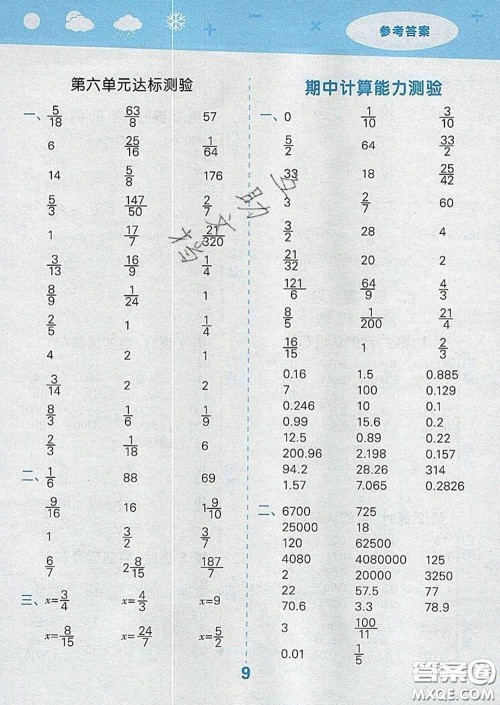 参考答案
第六单元达标测验
一、 5/18 63/8 57
6 25/16 1/64
14 5/8 176
5/3 147/50 2/7
1 17/7 21/320
3/13 16/9 1/4
8/9 1/24 1
2/5 1 1/4
4 1 2
3/14 2 2
8/3 1/6 1/9
2/3 1/18 6
二、 1/6 88 69
1 9/16 16 1 9/10
1 1/3 3/7
6/7 2 8/15 187/7
三、 x=3/4 x=4/3 x=9
x=8/15 x=24/7 x=5/2
期中计算能力测验
一、 0 1/10 3/10
5/2 64 33/2
33 18 25/42
3 2/7 60
3/2 28 4
21/32 20 2
121/6 64/9 4/3
8/5 1/200 21/4
16/15 1 2/3
0.16 1.5 0.885
7 100 0.129
0.246 10 0.1
0.99 15.6 0.2
12.5 0.89 0.22
200.96 2.198 0.156
94.2 28.26 314
1.57 7.065 0.2826
二、 6700 725
25000 18
120 62500
4080 4080000 125
2 20000 3250
22 57.5 77
70.6 3.3 78.9
3 100/11
0.01 1/5
9
答案圈
MXQE.COM